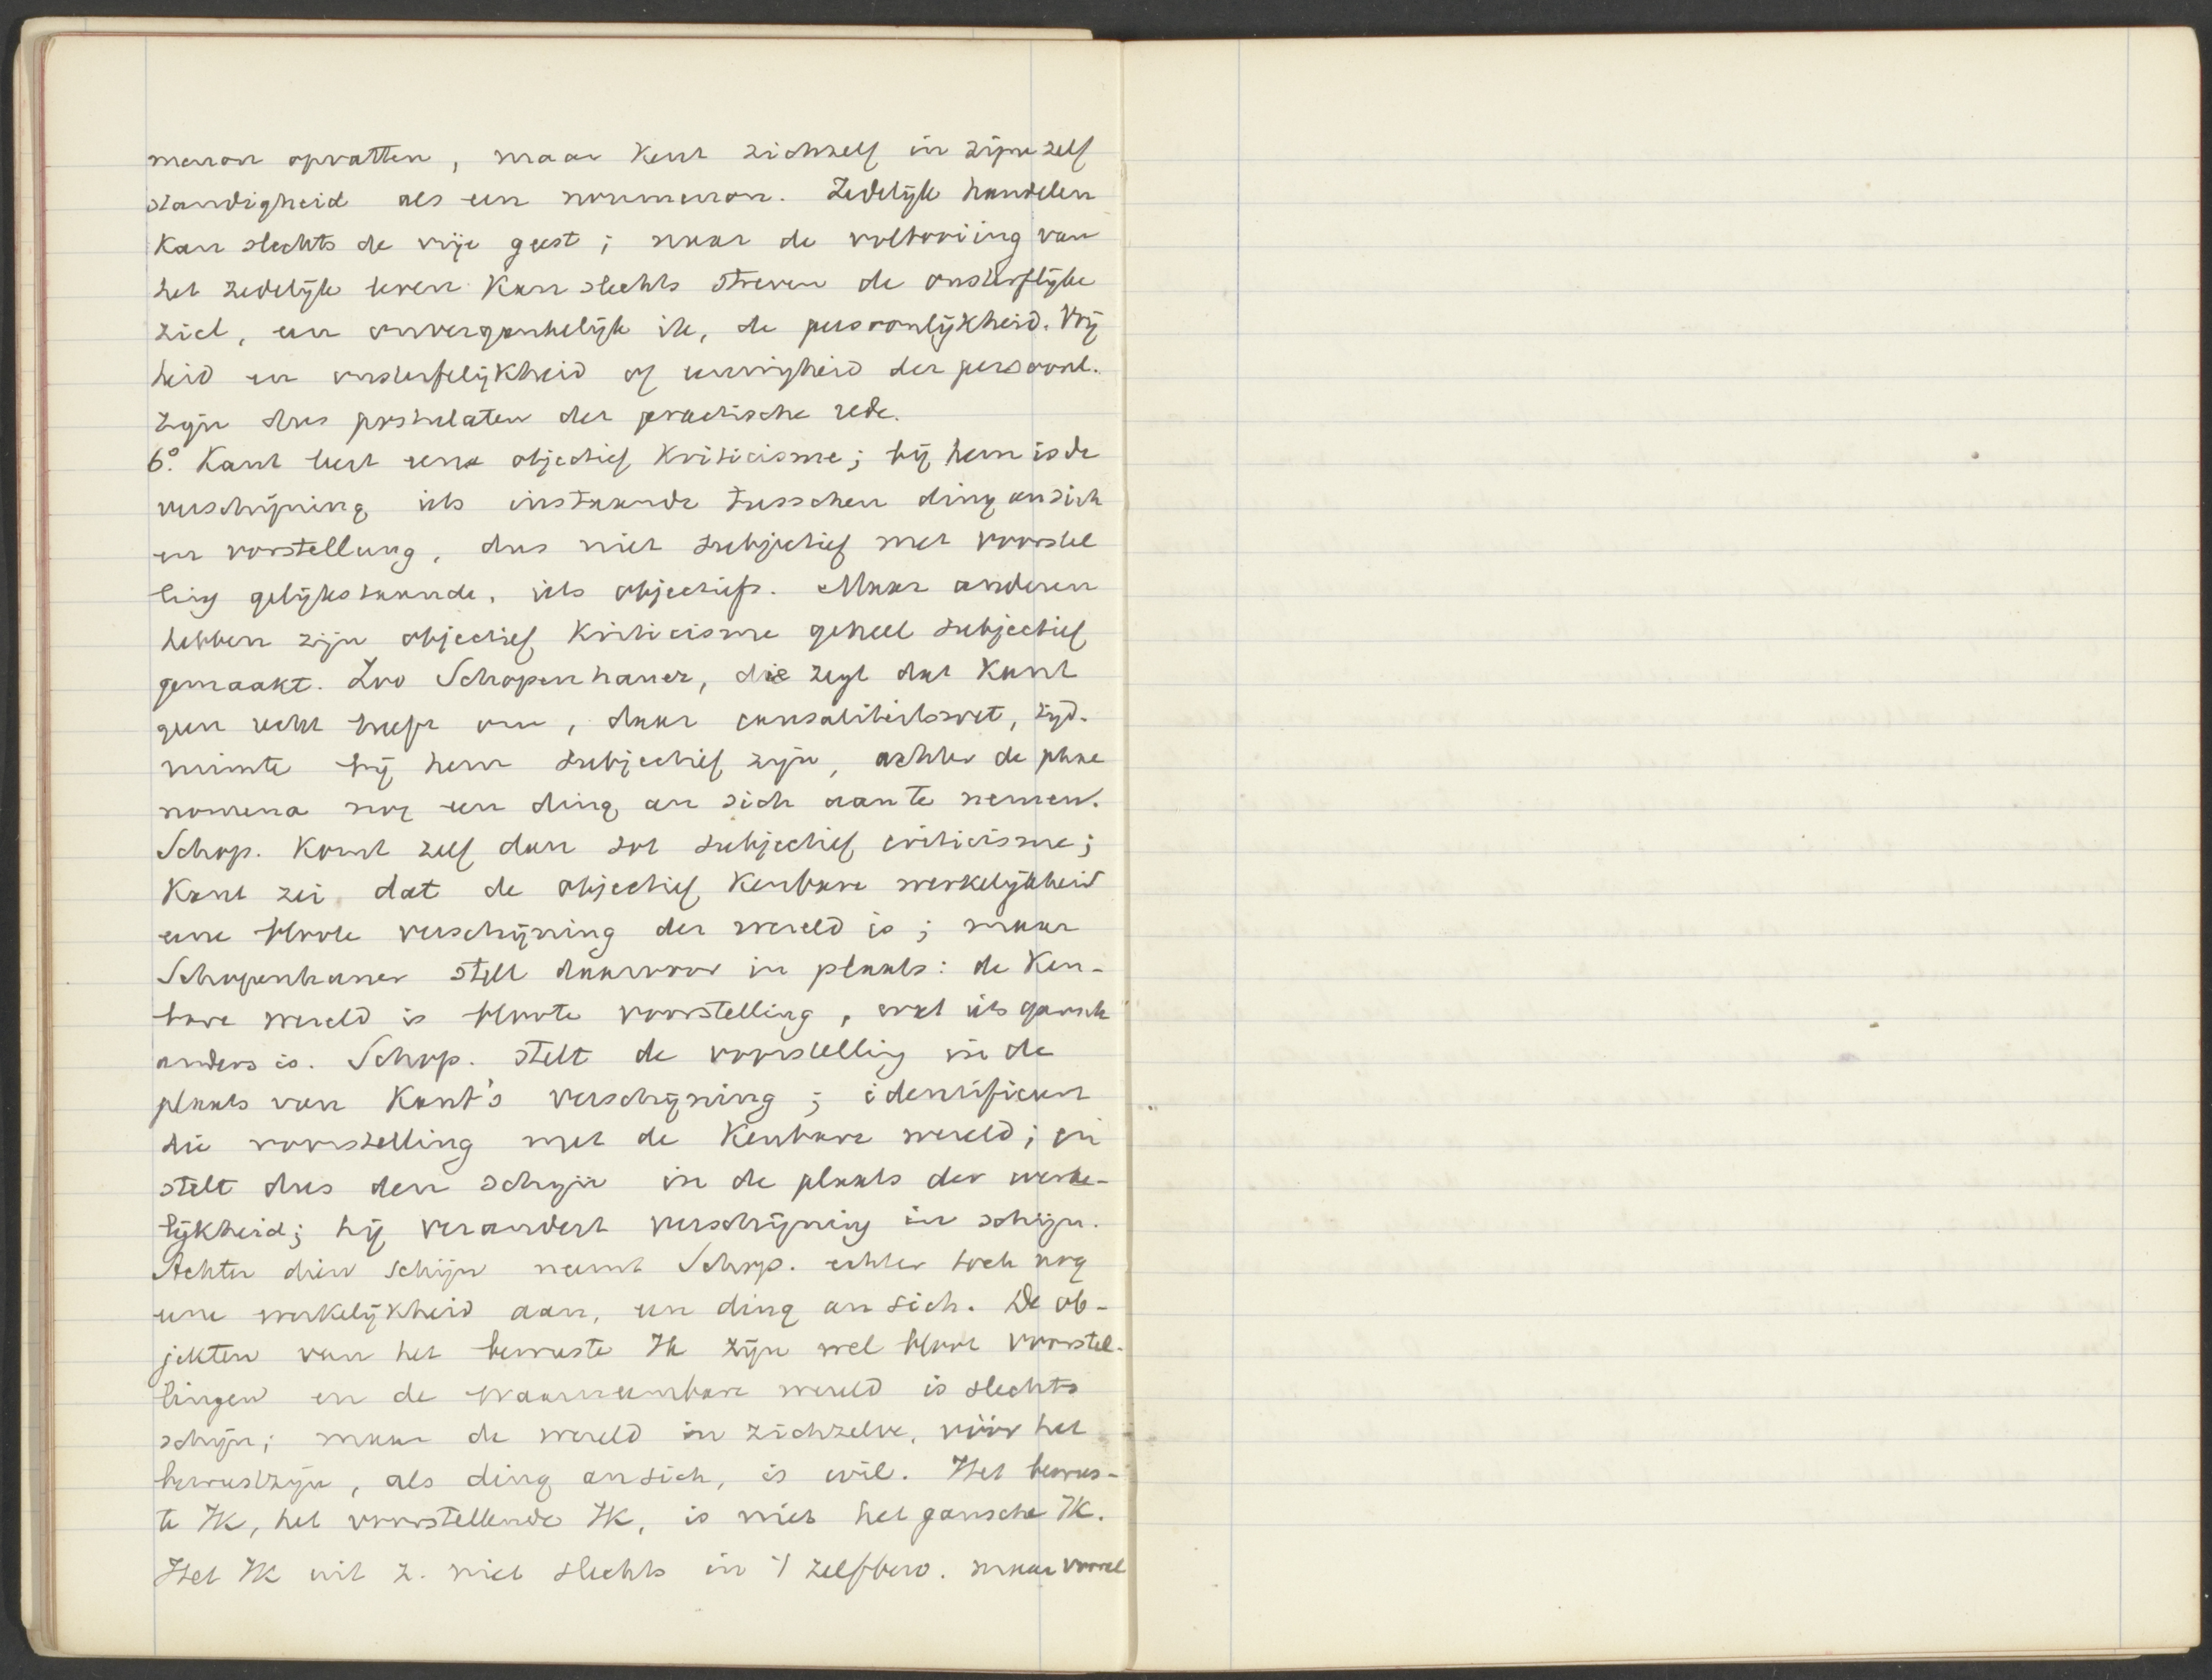 menon opvatten, maar kent zichzelf in zijne zelf
standigheid als een noumenon. Zedelijk handelen
kan slechts de vrije geest; naar de voltooiing van
het zedelijk leven kan slechts streven de onsterflijke
ziel, een onvergankelijk ik, de persoonlijkheid. Vrij
heid en onsterfelijkheid of eeuwigheid der persoonl.
zijn dus postulaten der practische rede.
6º. Kant leert eene objectief kriticisme; bij hem is de
verschijning iets instaande tusschen ding an sich
en vorstellung, dus niet subjectief met voorstel
ling gelijkstaande, iets objectiefs. Maar anderen
hebben zijn objectief kriticisme geheel subjectief
gemaakt. Zoo Schopenhauer, die zegt dat Kant
geen recht heeft om, daar causaliteitswet, tijd.
ruimte bij hem subjectief zijn, achter de phae
nomena nog een ding an sich aan te nemen.
Schop. komt zelf dan tot subjectief criticisme;
Kant zei dat de objectief kenbare werkelijkheid
eene bloote verschijning der wereld is; maar
Schopenhauer stelt daarvoor in plaats: de ken-
bare wereld is bloote voorstelling, wat iets gansch
anders is. Schop. stelt de voorstelling in de
plaats van Kant's verschijning; identificeert
die voorstelling met de kenbare wereld; en
stelt dus den schijn in de plaats der werke-
lijkheid; hij verandert verschijning in schijn.
Achter dien schijn neemt Schop. echter toch nog
eene werkelijkheid aan, een ding an sich. De ob-
jekten van het bewuste Ik zijn wel bloot voorstel-
lingen en de waarneembare wereld is slechts
schijn; maar de wereld in zichzelve, vóór het
bewustzijn, als ding an sich, is wil. Het bewus-
te Ik, het voorstellende Ik, is niet het gansche Ik.
Het Ik uit z. niet slechts in 't zelfbew. maar vooral